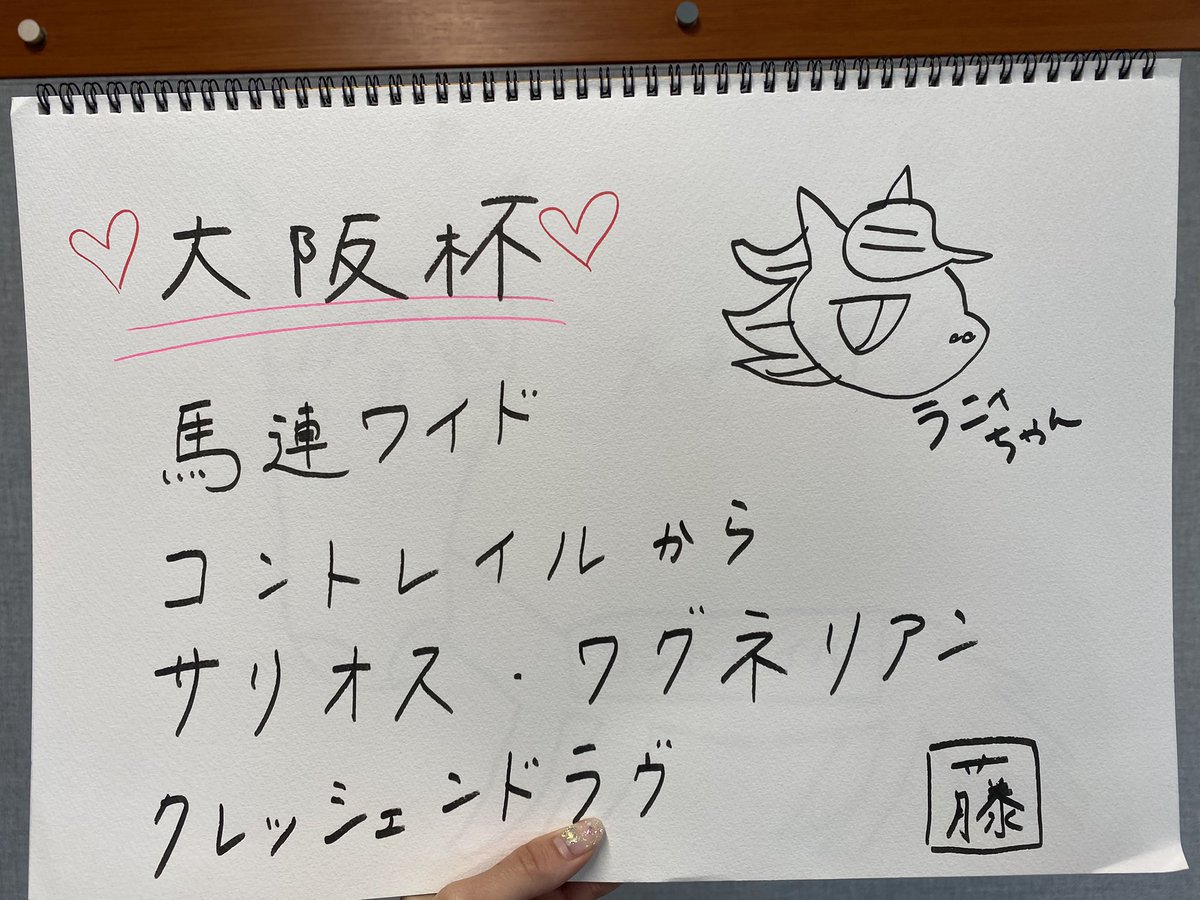 大阪杯
ラニィ
ちゃん
馬連ワイド
コントレイルから
サリオス・ワグネリアン
クレッシェンドラヴ
藤